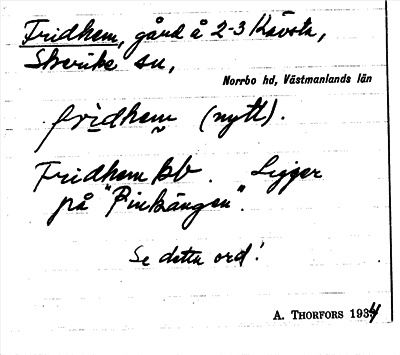 Fridhem, gård å 2-3 Kävsta,
Skerike sn,
Norrbo hd, Västmanlands län
fridhem (nytt).
Fridhem kb. Ligger
på "Pinkängen".
Se detta ord!
A. THORFORS 1934